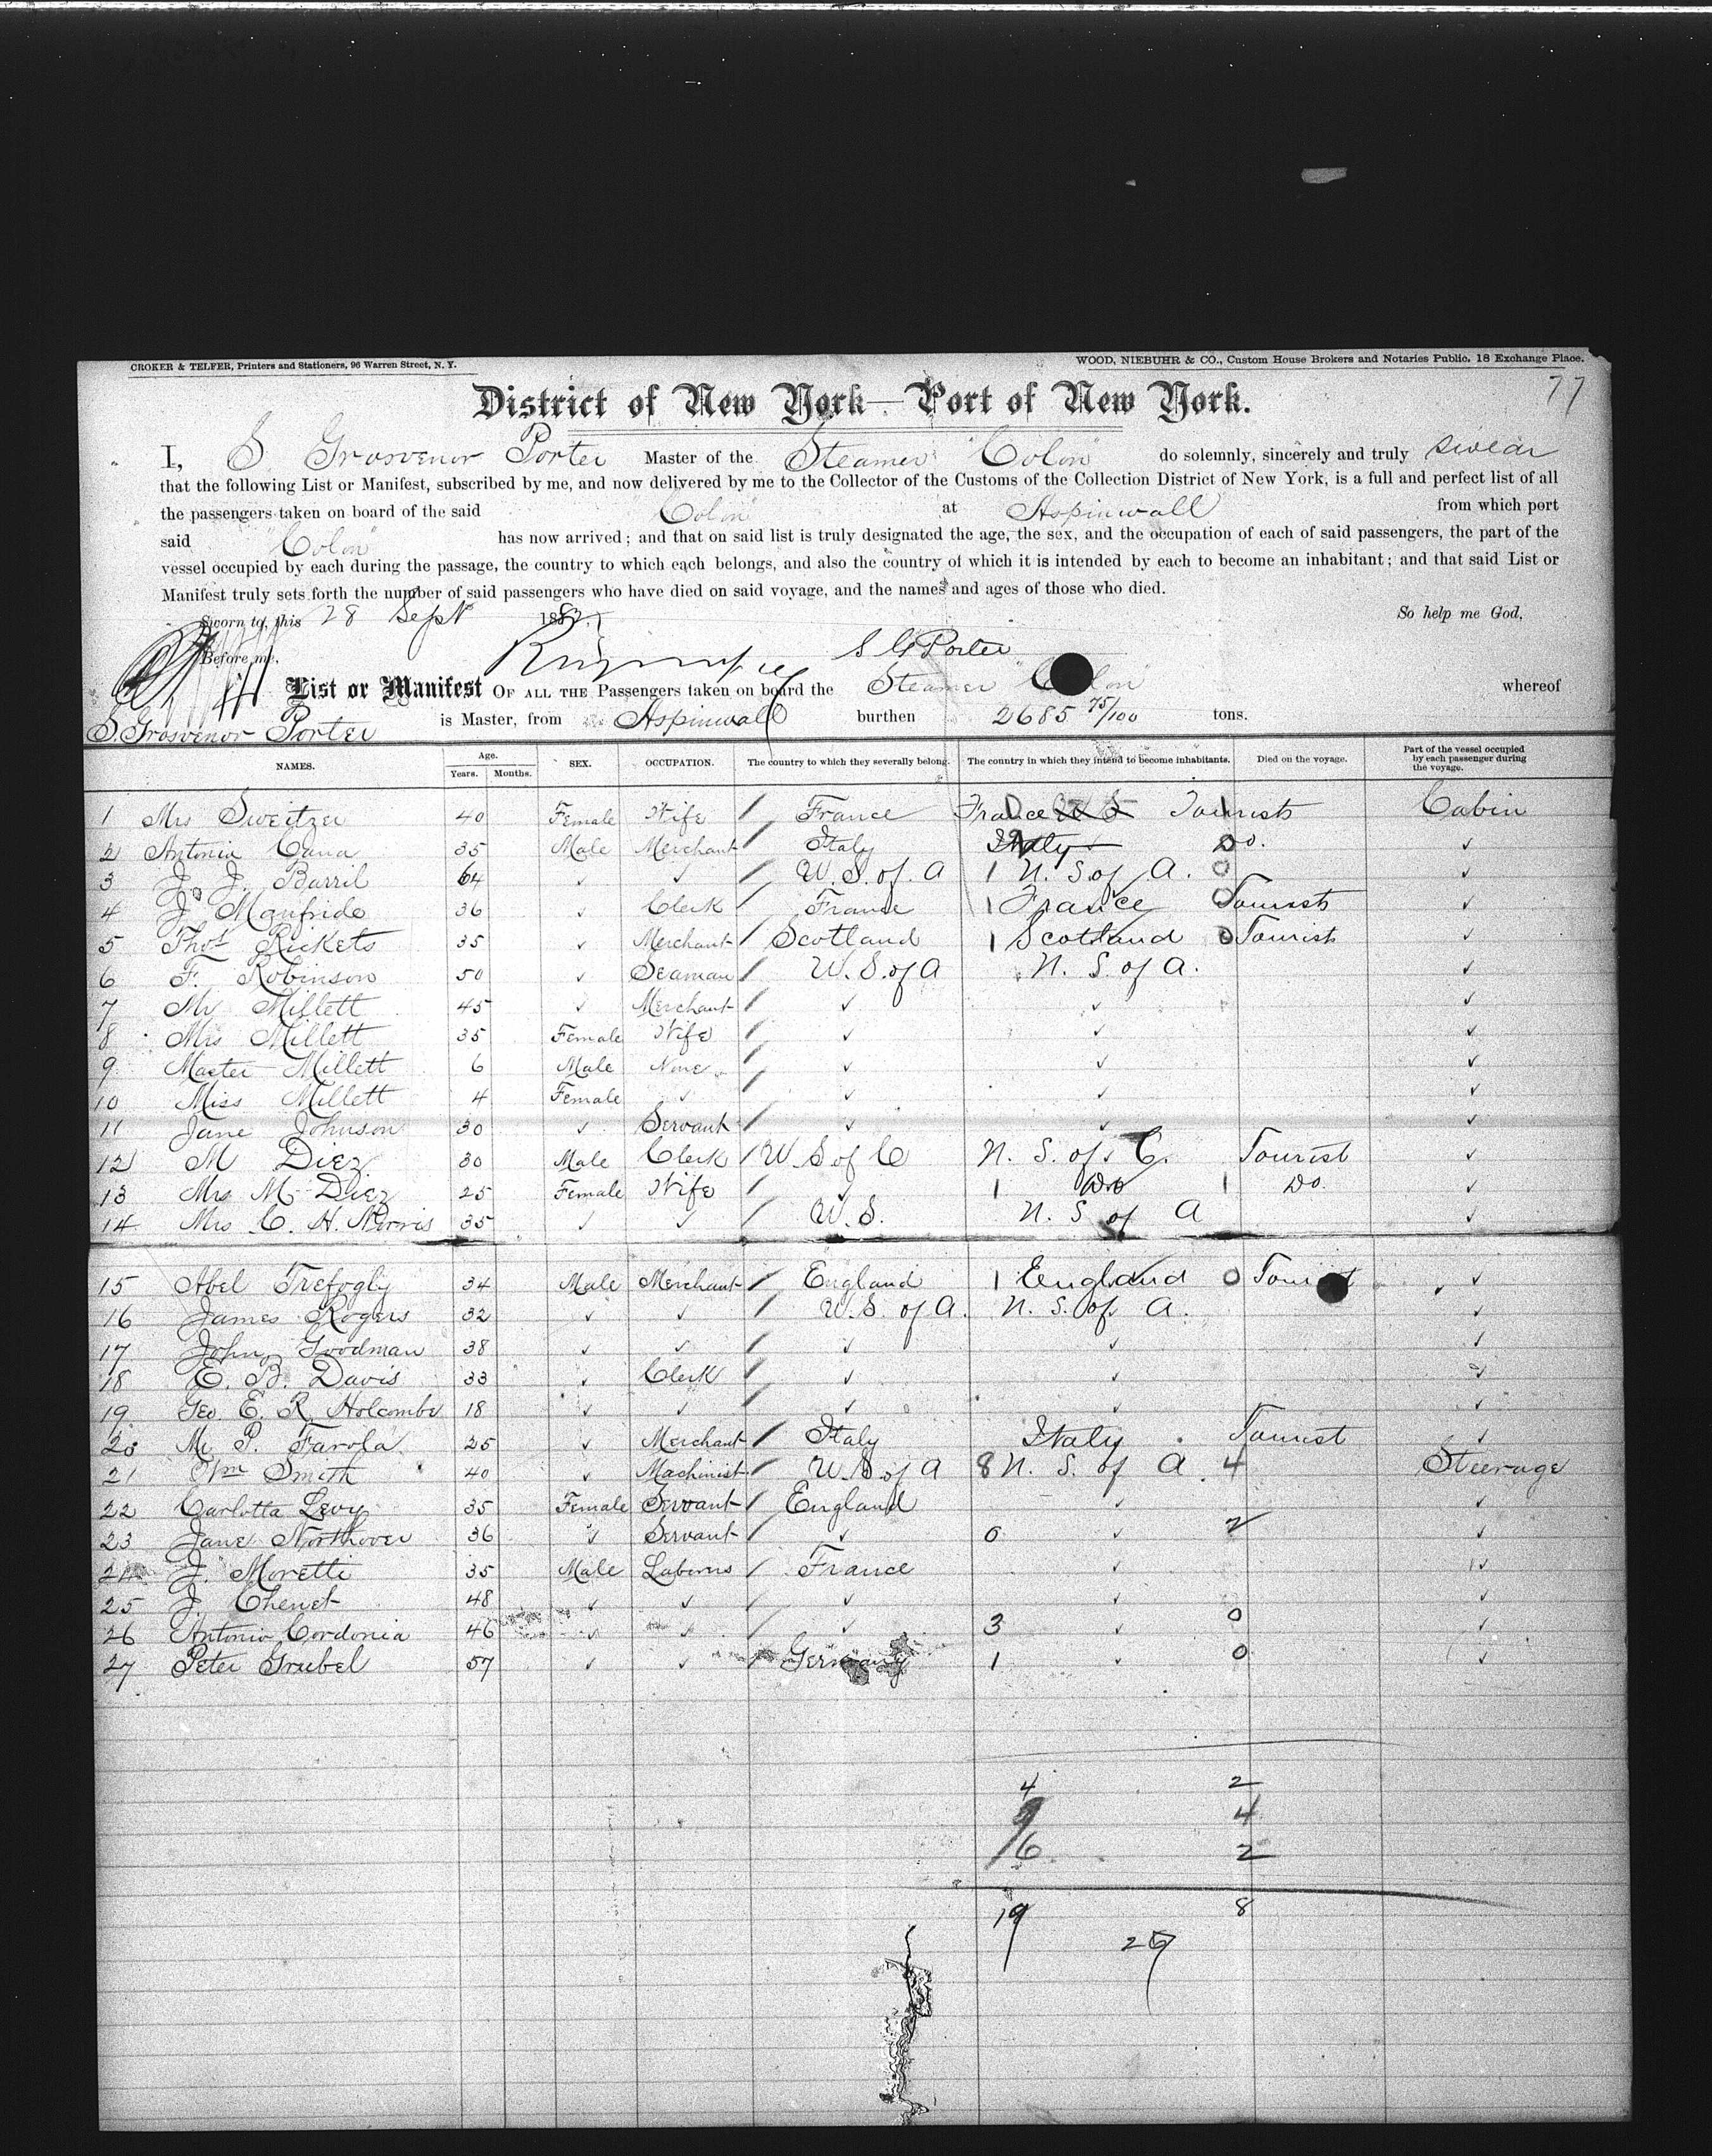 CROKER & TELFER, Printers and Stationers, 96 Warren Street, N. Y.
WOOD, NIEBUHR & CO., Custom House Brokers and Notaries Public, 18 Exchange Place.
77
District of New York—Port of New York.
I, S. Grosvenor Porter Master of the Steamer "Colon" do solemnly, sincerely and truly swear
that the following List or Manifest, subscribed by me, and now delivered by me to the Collector of the Customs of the Collection District of New York, is a full and perfect list of all
the passengers taken on board of the said "Colon" at Aspinwall from which port
said "Colon" has now arrived; and that on said list is truly designated the age, the sex, and the occupation of each of said passengers, the part of the
vessel occupied by each during the passage, the country to which each belongs, and also the country of which it is intended by each to become an inhabitant; and that said List or
Manifest truly sets forth the number of said passengers who have died on said voyage, and the names and ages of those who died.
Sworn to, this 28 Sept 1882 So help me God,
Before me, S G Porter
List or Manifest OF ALL THE Passengers taken on board the Steamer "Colon" whereof
S. Grosvenor Porter is Master, from Aspinwall burthen 2685 75/100 tons.
NAMES. Age. Years. Months. SEX. OCCUPATION. The country to which they severally belong. The country in which they intend to become inhabitants. Died on the voyage. Part of the vessel occupied by each passenger during the voyage.
1 Mrs Sweitzer 40 Female Wife / France France U S Tourists Cabin
2 Antonia Cana 35 Male Merchant / Italy Italy Do. ✓
3 J. J. Barril 64 ✓ ✓ / U. S. of A 1 U. S. of A. 0 ✓
4 J Manfrido 36 ✓ Clerk / France 1 France 0 Tourists ✓
5 Thos Rickets 35 ✓ Merchant / Scotland 1 Scotland 0 Tourist ✓
6 F. Robinson 50 ✓ Seaman / U. S. of A U. S. of A. ✓
7 Mr Millett 45 ✓ Merchant / ✓ ✓ ✓
8 Mrs Millett 35 Female Wife / ✓ ✓ ✓
9 Master Millett 6 Male None / ✓ ✓ ✓
10 Miss Millett 4 Female ✓ / ✓ ✓ ✓
11 Jane Johnson 30 ✓ Servant / ✓ ✓ ✓
12 M Diez 30 Male Clerk / U S of C U. S. of C. Tourist ✓
13 Mrs M Diez 25 Female Wife / ✓ 1 Do 1 Do. ✓
14 Mrs C. H. Norris 35 ✓ ✓ / U. S. U. S of A ✓
15 Abel Trefogly 34 Male Merchant / England 1 England 0 Tourist ✓
16 James Rogers 32 ✓ ✓ / U. S. of A. U. S. of A. ✓
17 John Goodman 38 ✓ ✓ / ✓ ✓ ✓
18 E. B. Davis 33 ✓ Clerk / ✓ ✓ ✓
19 Geo. E. R. Holcombe 18 ✓ ✓ / ✓ ✓ ✓
20 Mr P. Farola 25 ✓ Merchant / Italy Italy Tourist ✓
21 Wm Smith 40 ✓ Machinist / U. S. of A 8 U. S. of A 4 Steerage
22 Carlotta Levy 35 Female Servant / England ✓ ✓
23 Jane Northover 36 ✓ Servant / ✓ 0 ✓ 2 ✓
24 J. Moretti 35 Male Laborers / France ✓ ✓
25 J. Chenet 48 ✓ ✓ / ✓ ✓ ✓
26 Antonio Cordonia 46 ✓ ✓ / ✓ 3 ✓ 0 ✓
27 Peter Grubel 57 ✓ ✓ / Germany 1 ✓ 0 ✓
4 2
9 4
6 2
19 8
27